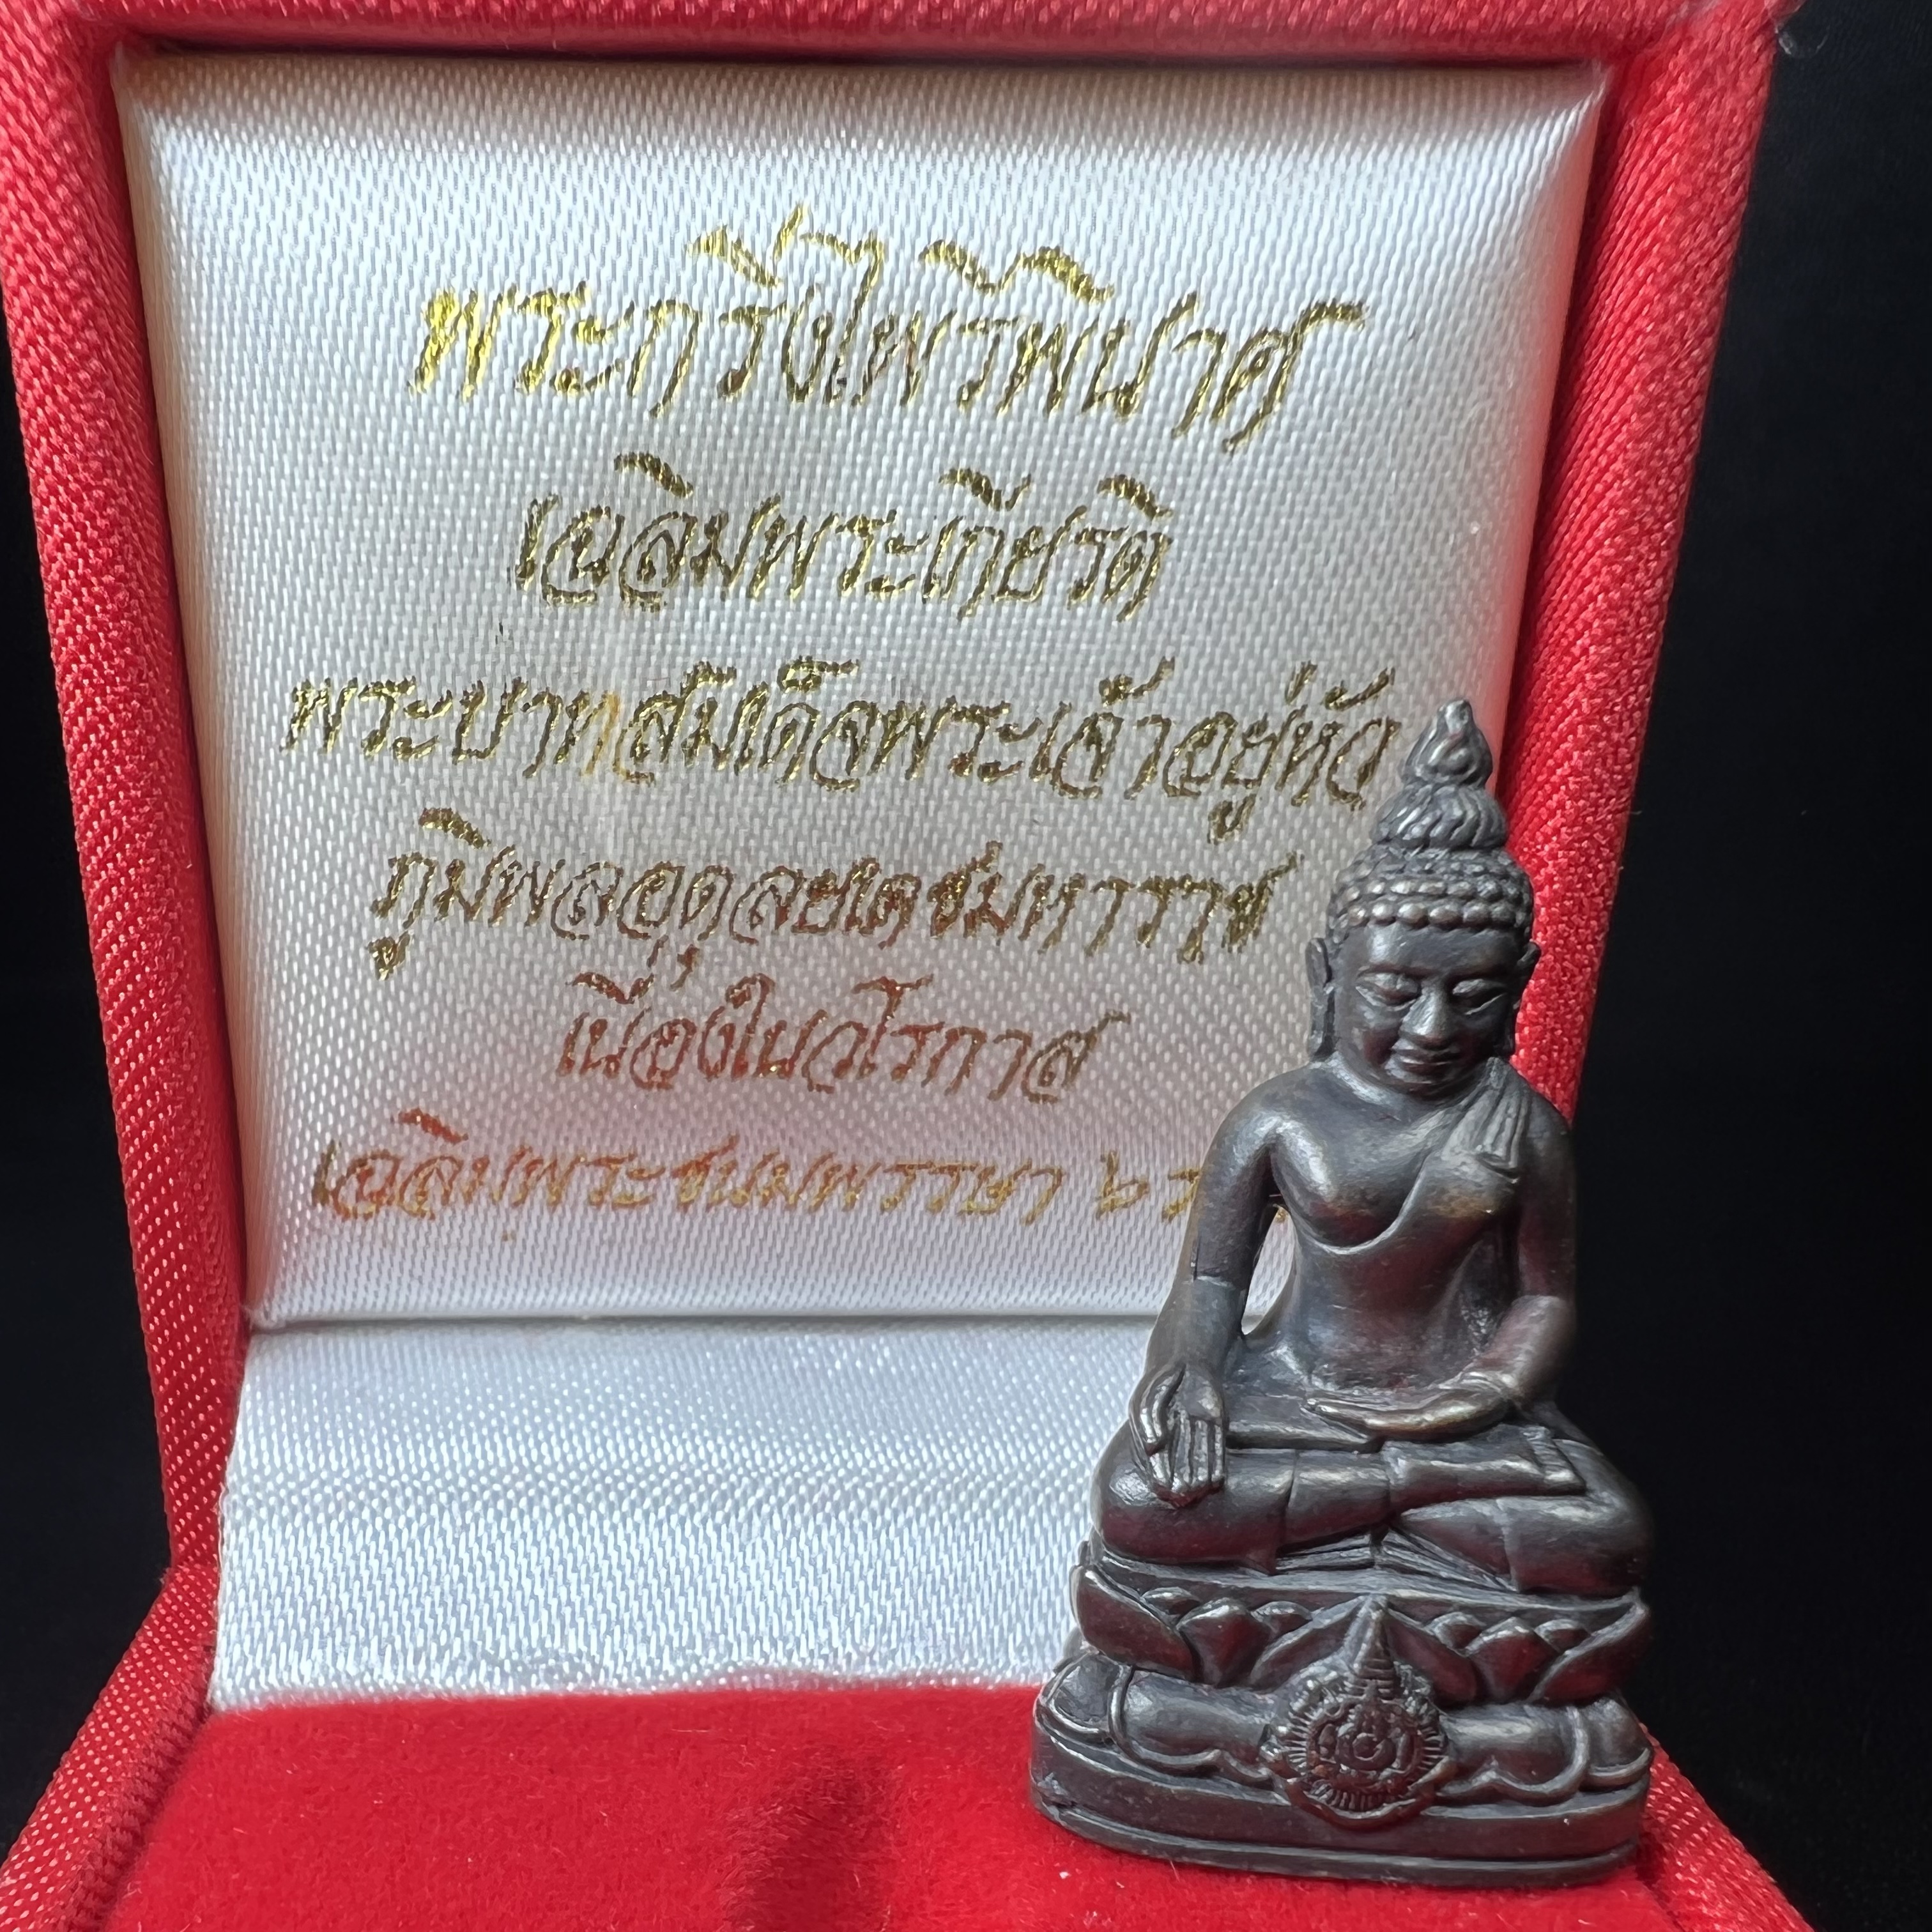 พระกริ่งไพรีพินาศ
เฉลิมพระเกียรติ
พระบาทสมเด็จพระเจ้าอยู่หัว
ภูมิพลอดุลยเดชมหาราช
เนื่องในวโรกาส
เฉลิมพระชนมพรรษา ๖